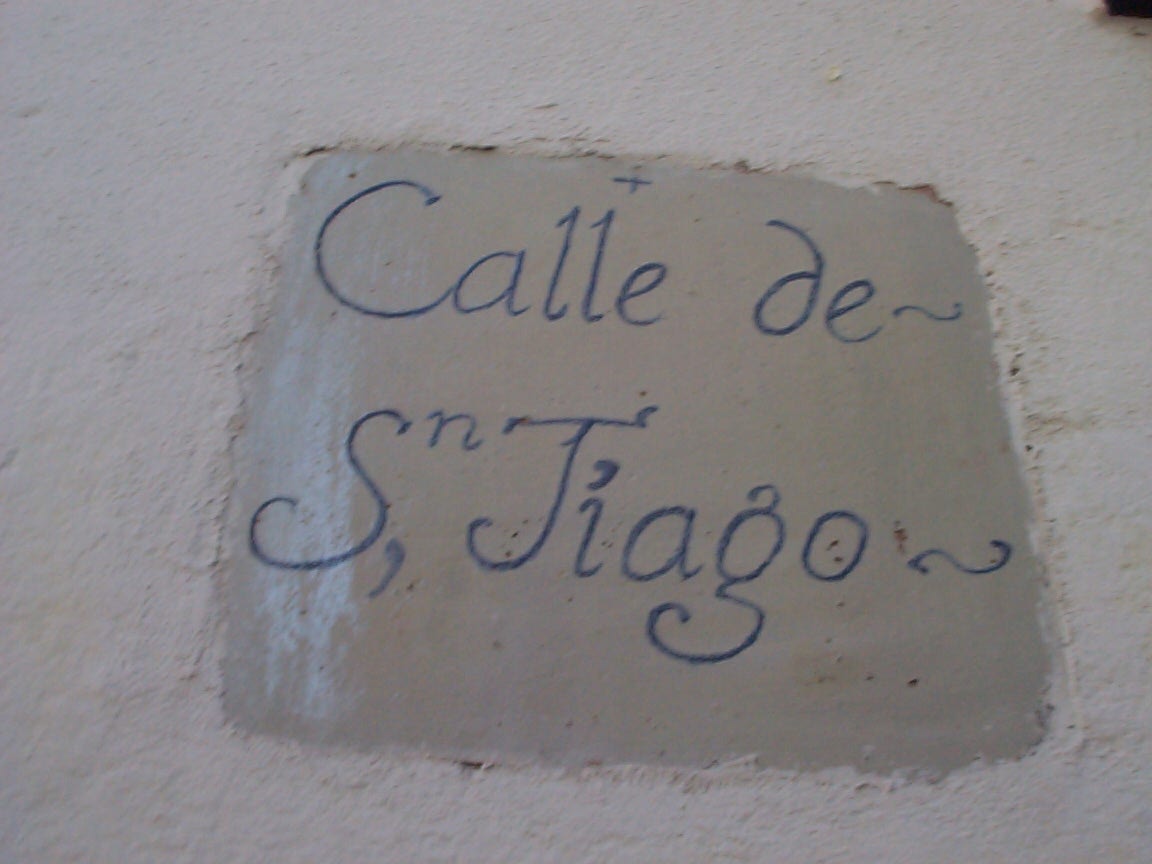 Calle de~
Sⁿ, Tiago~